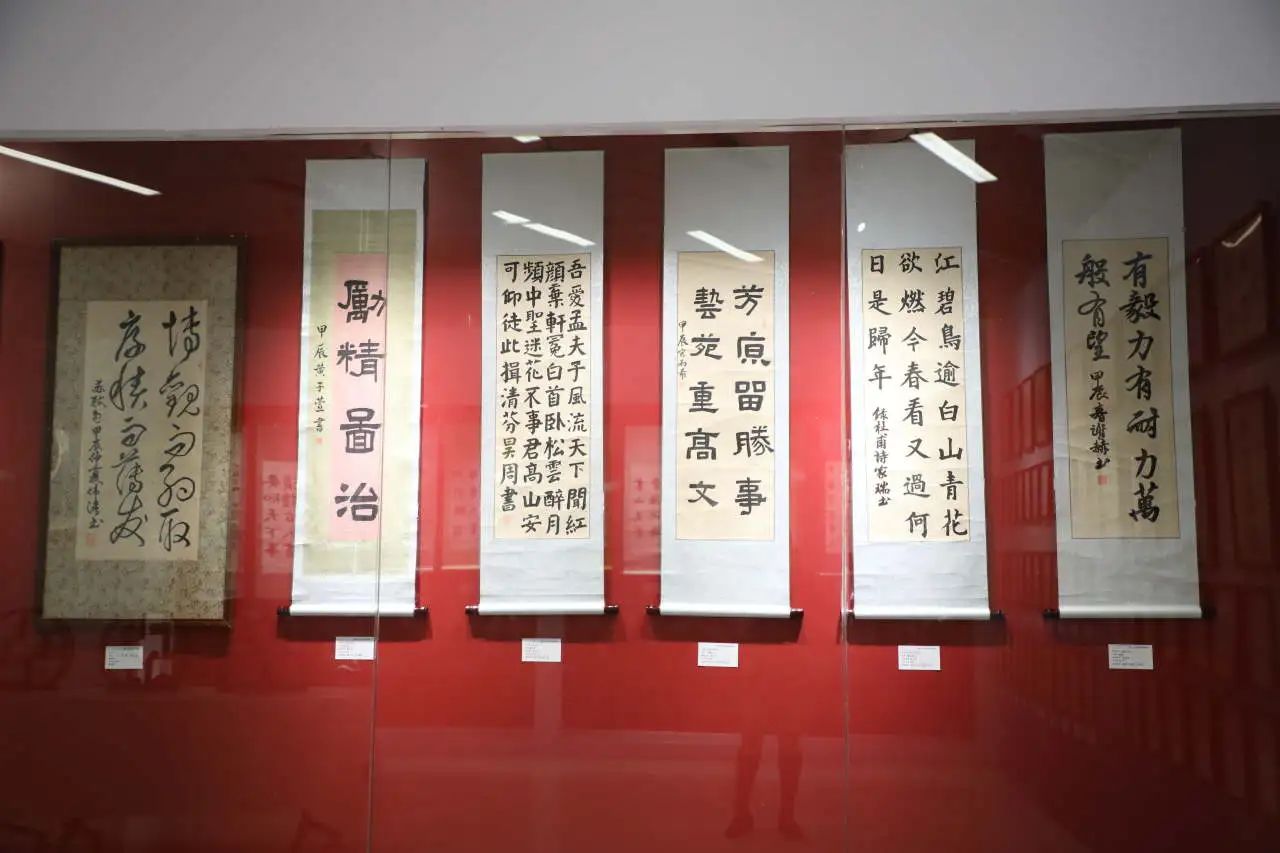 博觀而約取
厚積而薄發
蘇軾句甲辰仲夏
勵精圖治
甲辰黃子萱書
吾愛孟夫子風流天下聞紅
顏棄軒冕白首臥松雲醉月
頻中聖迷花不事君高山安
可仰徒此揖清芬昊周書
芳原留勝事
藝苑重高文
甲辰
江碧鳥逾白山青花
欲燃今春看又過何
日是歸年 錄杜甫詩家瑞書
有毅力有耐力萬
般有望 甲辰春謝赫書